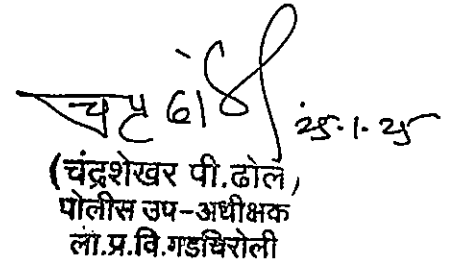 25.1.25
(चंद्रशेखर पी.ढोले)
पोलीस उप-अधीक्षक
ला.प्र.वि.गडचिरोली